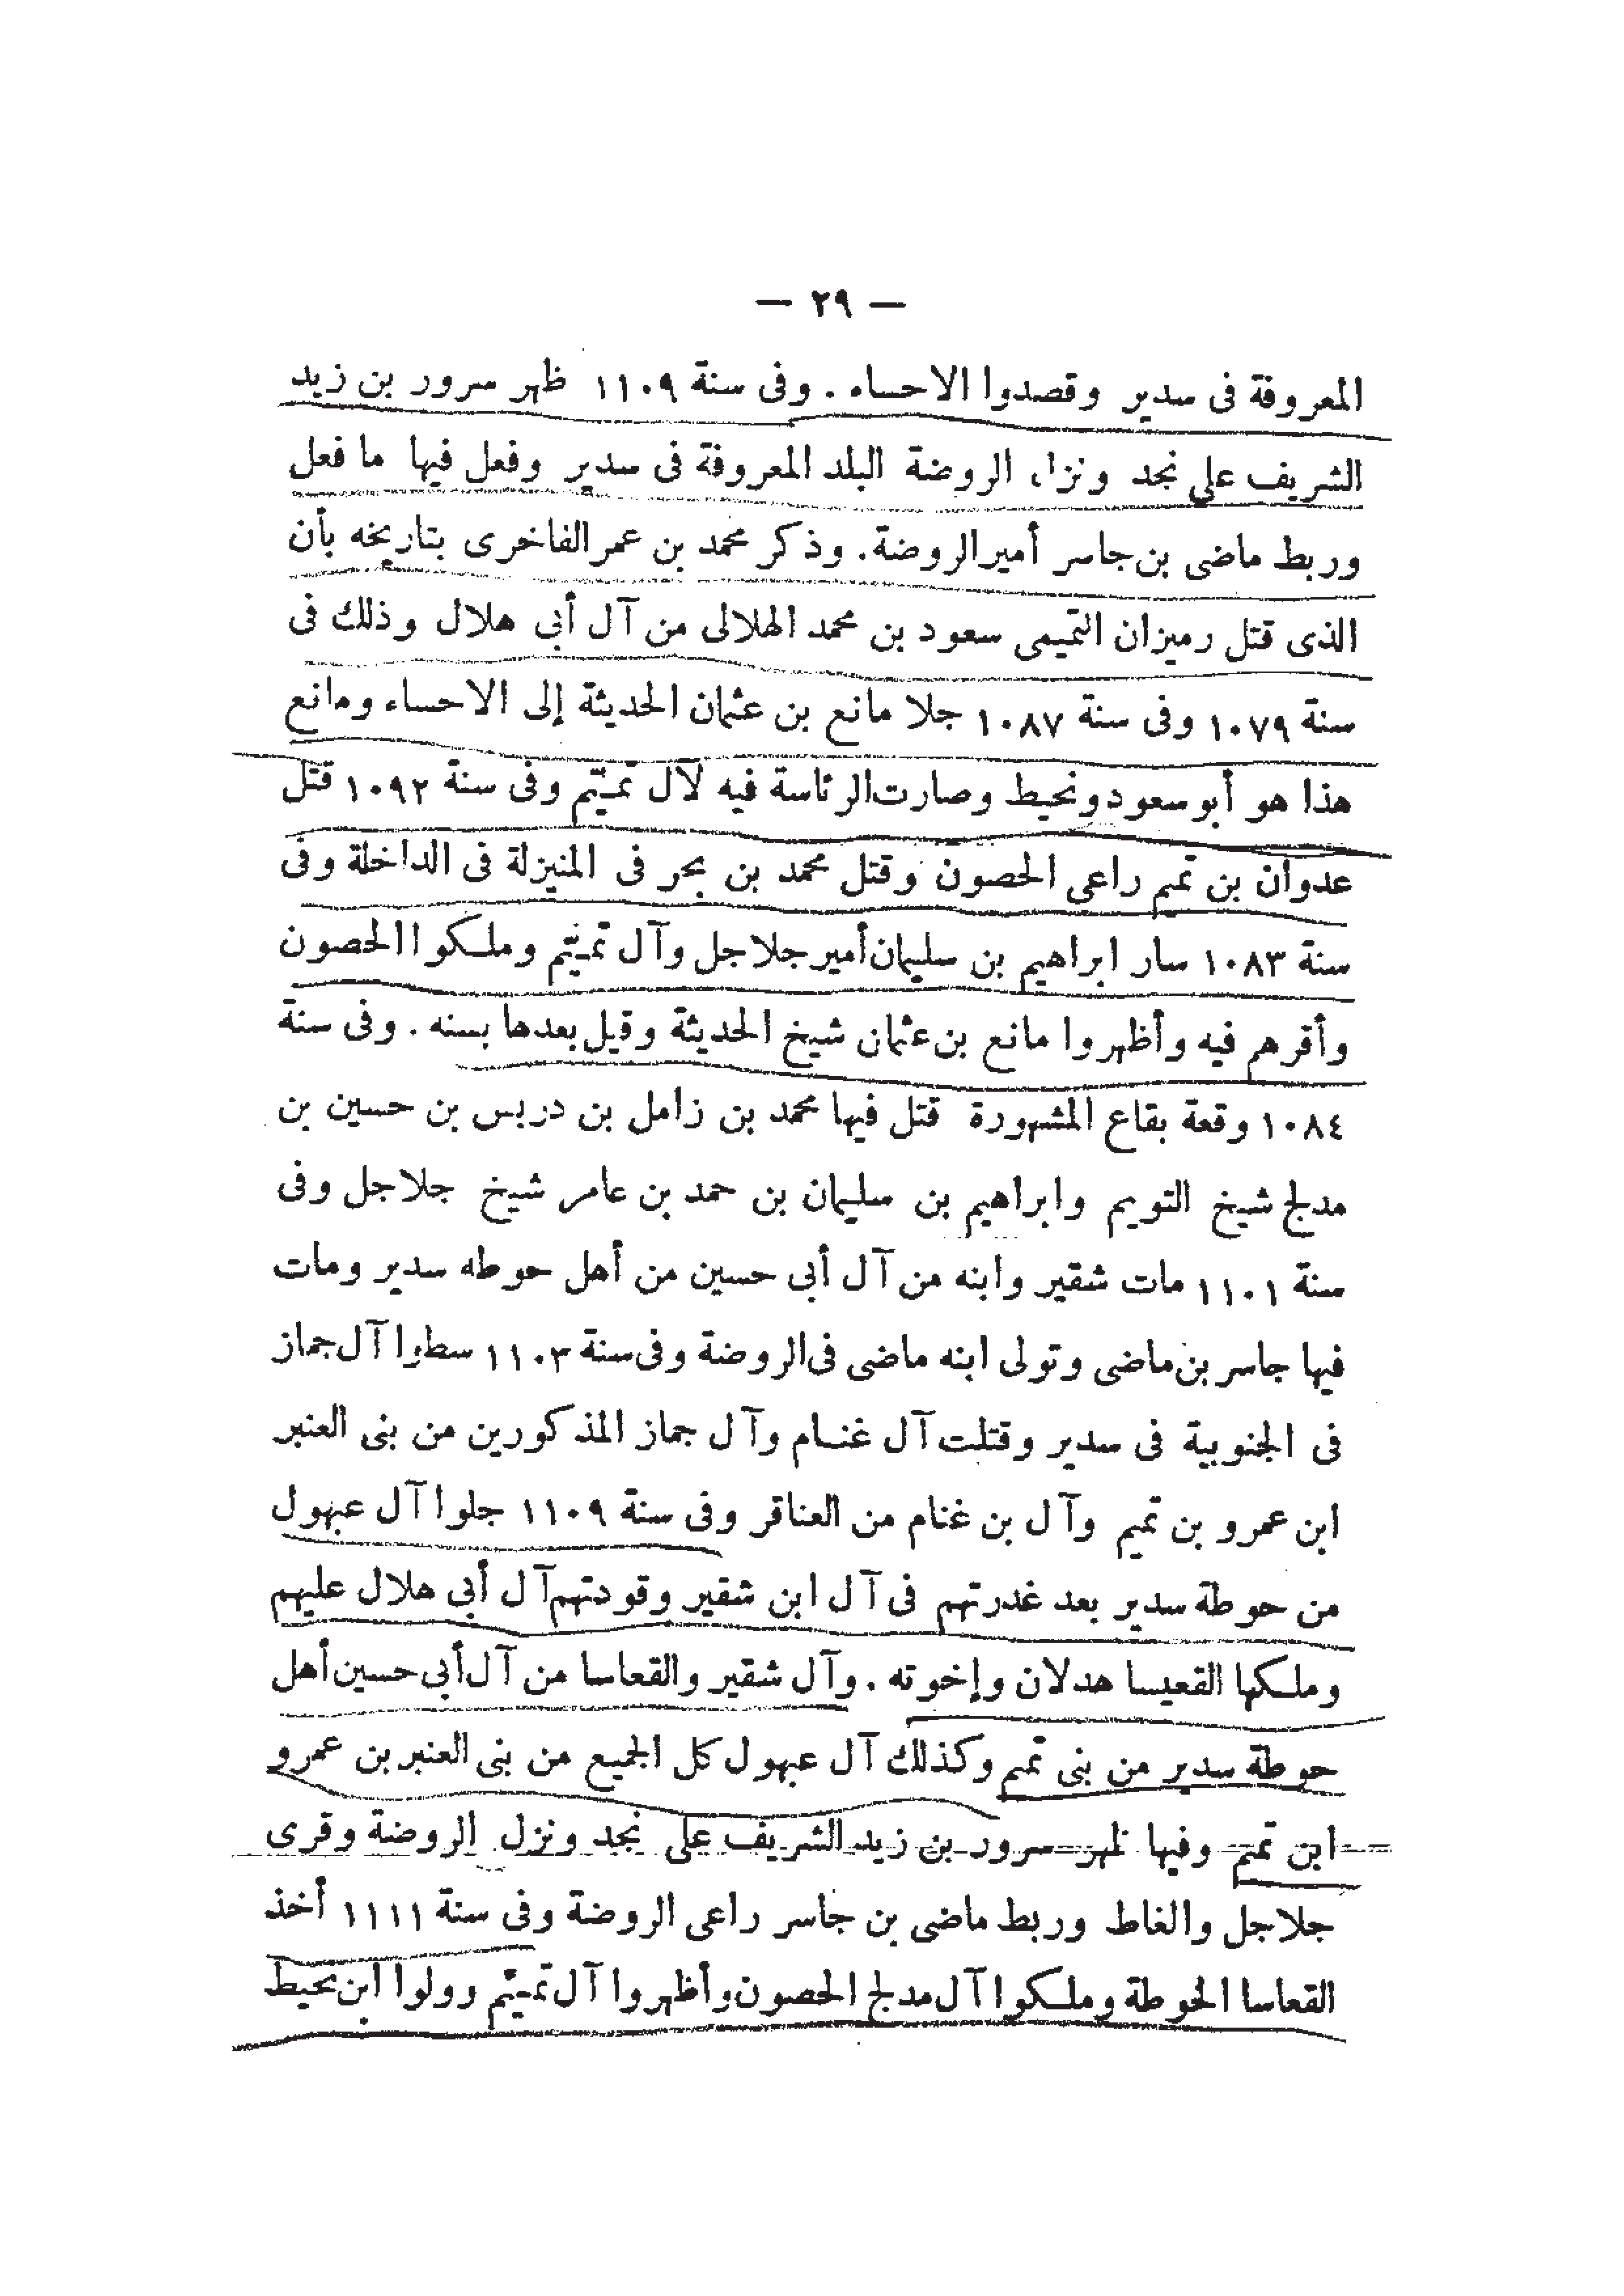 — ٢٩ —
المعروفة فى سدير وقصدوا الاحساء . وفى سنة ١١٠٩ ظهر سرور بن زيد
الشريف على نجد ونزل الروضة البلد المعروفة فى سدير وفعل فيها ما فعل
وربط ماضى بن جاسر أمير الروضة . وذكر محمد بن عمر الفاخرى بتاريخه بأن
الذى قتل رميزان التميمى سعود بن محمد الهلالى من آل أبي هلال وذلك فى
سنة ١٠٧٩ وفى سنة ١٠٨٧ جلا مانع بن عثمان الحديثة إلى الاحساء ومانع
هذا هو أبو سعود ونحيط وصارت الرئاسة فيه لآل تميّم وفى سنة ١٠٩٢ قتل
عدوان بن تميم راعى الحصون وقتل محمد بن بحر فى المنيزلة فى الداخلة وفى
سنة ١٠٨٣ سار ابراهيم بن سليمان أمير جلاجل وآل تميّم وملكوا الحصون
وأقرهم فيه وأظهروا مانع بن عثمان شيخ الحديثة وقيل بعدها بسنه . وفى سنة
١٠٨٤ وقعة بقاع المشهورة قتل فيها محمد بن زامل بن دريس بن حسين بن
مدلج شيخ التويم وابراهيم بن سليمان بن حمد بن عامر شيخ جلاجل وفى
سنة ١١٠١ مات شقير وابنه من آل أبى حسين من أهل حوطه سدير ومات
فيها جاسر بن ماضى وتولى ابنه ماضى فى الروضة وفى سنة ١١٠٣ سطوا آل جماز
فى الجنوبية فى سدير وقتلت آل غنام وآل جماز المذكورين من بنى العنبر
ابن عمرو بن تميم وآل بن غنام من العناقر وفى سنة ١١٠٩ جلوا آل عبهول
من حوطة سدير بعد غدرتهم فى آل ابن شقير وقودتهم آل أبي هلال عليهم
وملكها القعيسا هدلان وإخوته . وآل شقير والقعاسا من آل أبى حسين أهل
حوطة سدير من بنى تميم وكذلك آل عبهول كل الجميع من بنى العنبر بن عمرو
ابن تميم وفيها ظهر سرور بن زيد الشريف على نجد ونزل الروضة وقرى
جلاجل والغاط وربط ماضى بن جاسر راعى الروضة وفى سنة ١١١١ أخذ
القعاسا الحوطة وملكوا آل مدلج الحصون وأظهروا آل تميّم وولوا ابن نحيط